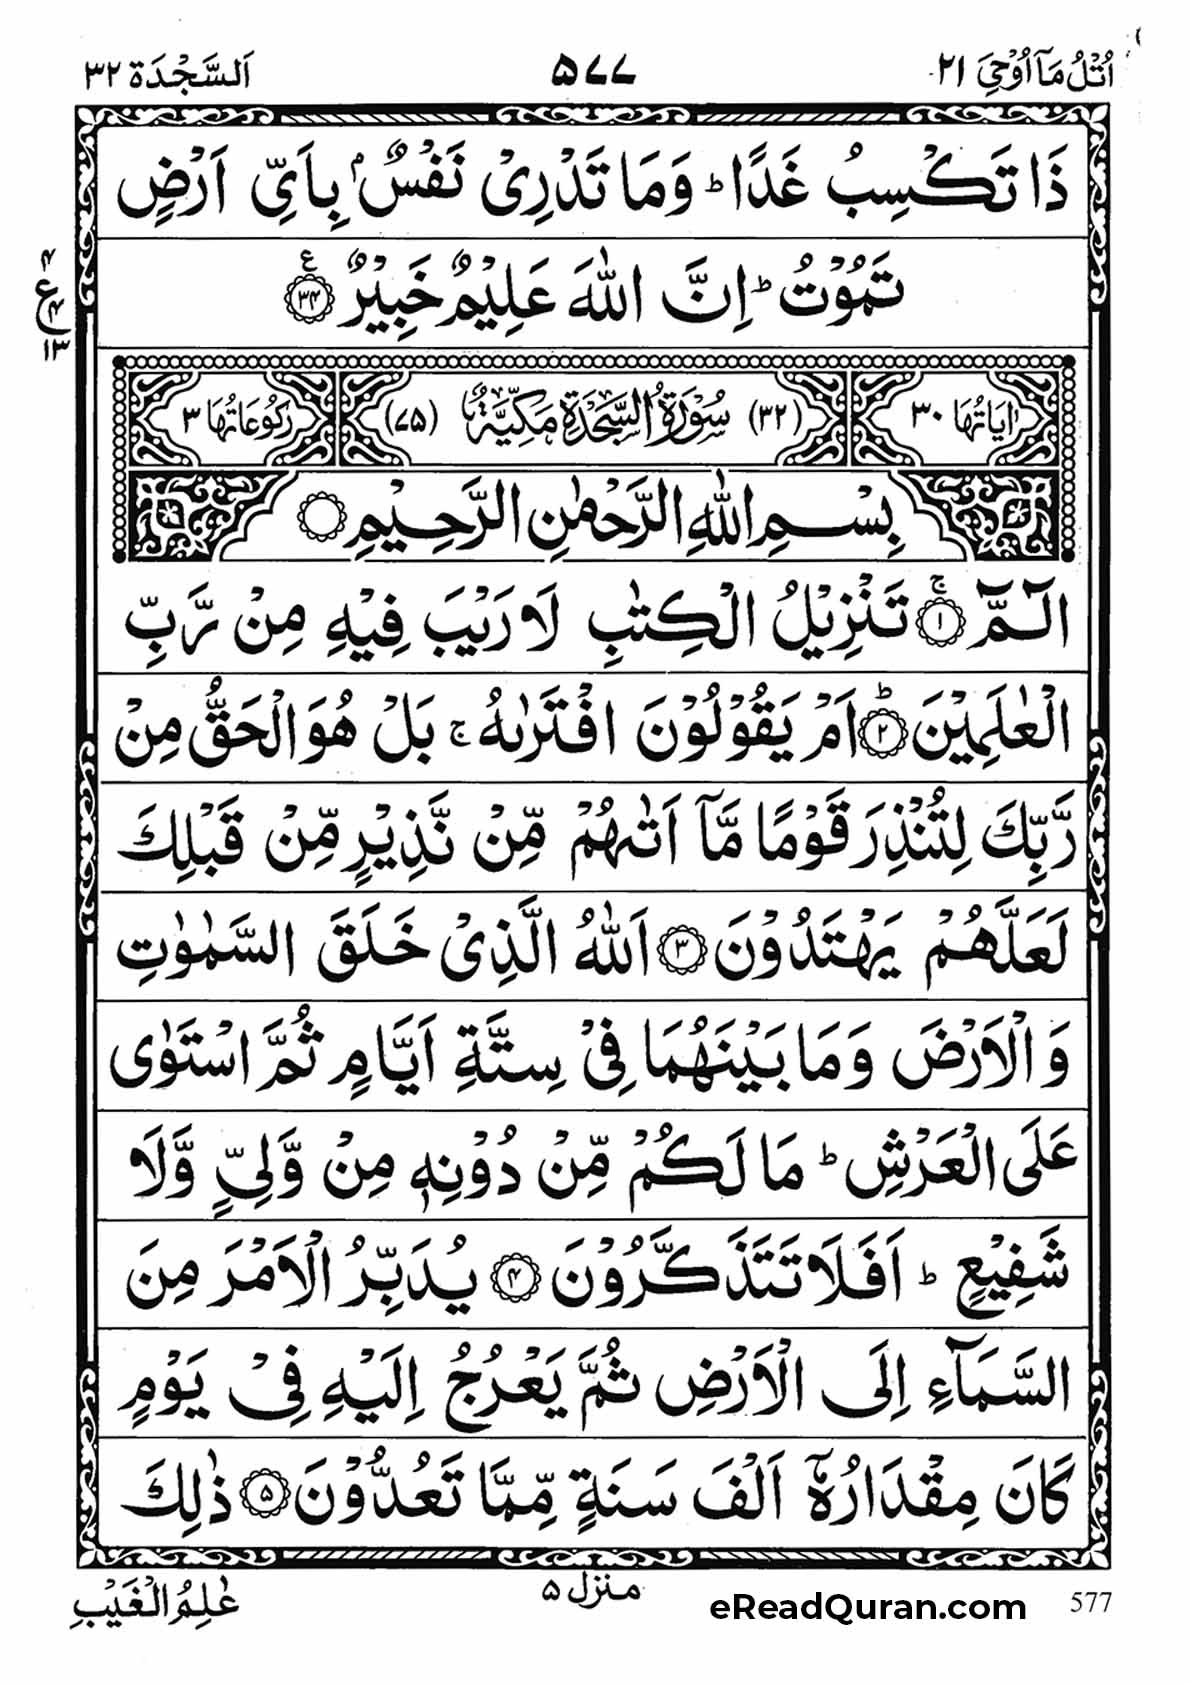 اُتْلُ مَاۤ اُوْحِیَ ۲۱
۵۷۷
اَلسَّجْدَة ۳۲
ذَا تَكْسِبُ غَدًا ؕ وَمَا تَدْرِیْ نَفْسٌۢ بِاَیِّ اَرْضٍ
تَمُوْتُ ؕ اِنَّ اللّٰهَ عَلِیْمٌ خَبِیْرٌ ۠ ﴿۳۴﴾
۴
ع
۴
۱۳
اٰیَاتُهَا ۳۰
(۳۲) سُوْرَةُ السَّجْدَةِ مَكِّیَّةٌ (۷۵)
رُكُوْعَاتُهَا ۳
بِسْمِ اللّٰهِ الرَّحْمٰنِ الرَّحِیْمِ
الٓـمّٓ ۚ ﴿۱﴾ تَنْزِیْلُ الْكِتٰبِ لَا رَیْبَ فِیْهِ مِنْ رَّبِّ
الْعٰلَمِیْنَ ؕ ﴿۲﴾ اَمْ یَقُوْلُوْنَ افْتَرٰىهُ ۚ بَلْ هُوَ الْحَقُّ مِنْ
رَّبِّكَ لِتُنْذِرَ قَوْمًا مَّاۤ اَتٰىهُمْ مِّنْ نَّذِیْرٍ مِّنْ قَبْلِكَ
لَعَلَّهُمْ یَهْتَدُوْنَ ﴿۳﴾ اَللّٰهُ الَّذِیْ خَلَقَ السَّمٰوٰتِ
وَالْاَرْضَ وَمَا بَیْنَهُمَا فِیْ سِتَّةِ اَیَّامٍ ثُمَّ اسْتَوٰی
عَلَی الْعَرْشِ ؕ مَا لَكُمْ مِّنْ دُوْنِهٖ مِنْ وَّلِیٍّ وَّلَا
شَفِیْعٍ ؕ اَفَلَا تَتَذَكَّرُوْنَ ﴿۴﴾ یُدَبِّرُ الْاَمْرَ مِنَ
السَّمَآءِ اِلَی الْاَرْضِ ثُمَّ یَعْرُجُ اِلَیْهِ فِیْ یَوْمٍ
كَانَ مِقْدَارُهٗۤ اَلْفَ سَنَةٍ مِّمَّا تَعُدُّوْنَ ﴿۵﴾ ذٰلِكَ
عٰلِمُ الْغَیْبِ
منزل ۵
eReadQuran.com
577